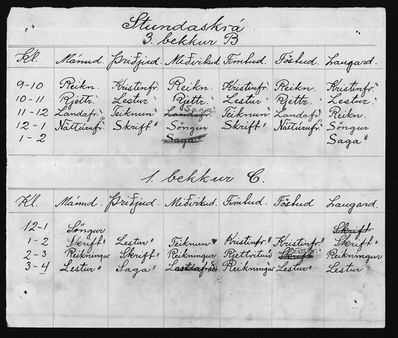 Stundaskrá
3. bekkur B
Kl. Mánud. Þriðjud. Miðvikud. Fimtud. Föstud. Laugard.
9-10 Reikn. Kristinfr. Reikn. Kristinfr. Reikn. Kristinfr.
10-11 Rjettr. Lestur Rjettr. Lestur Rjettr. Lestur
11-12 Landafr. Teiknun Saga Teiknun Landafr. Reikn.
12-1 Náttúrufr. Skrift Söngur Skrift Náttúrufr. Söngur
1-2 Saga Saga
1. bekkur C.
Kl. Mánud. Þriðjud. Miðvikud. Fimtud. Föstud. Laugard.
12-1 Söngur Skrift
1-2 Skrift Lestur Teiknun Kristinfr. Kristinfr. Skrift
2-3 Reikningur Skrift Reikningur Rjettritun Skrift Reikningur
3-4 Lestur Saga Landafræði Reikningur Lestur Lestur